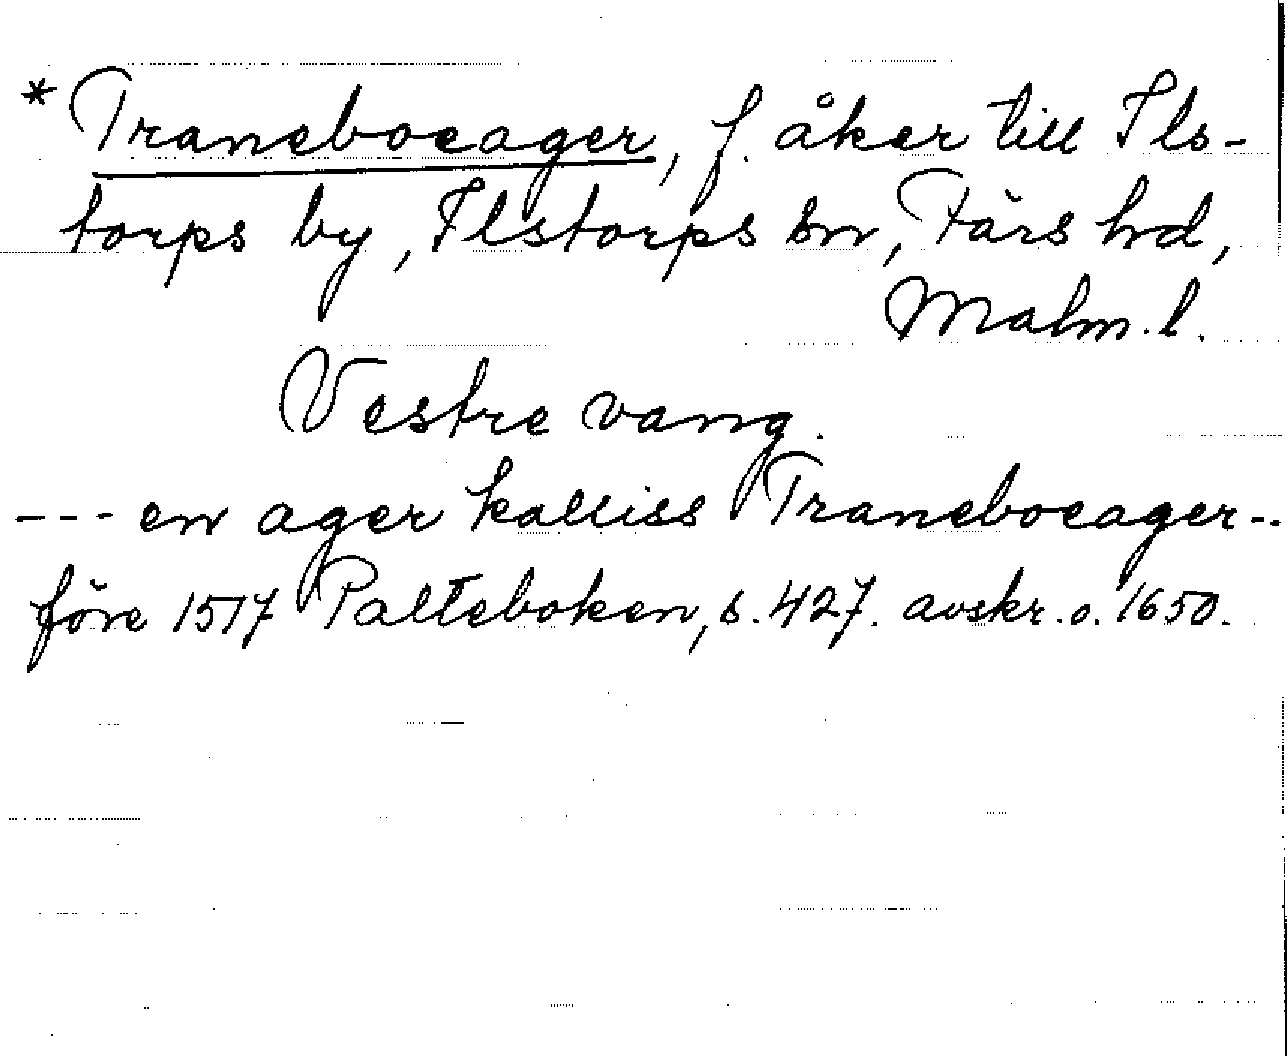 * Traneboeager, f. åker till Ils-
torps by, Ilstorps sn, Färs hd,
Malm. l.
Vestre vang.
--- en ager kalliss Traneboeager--
före 1517 Palteboken, s. 427. avskr. o. 1650.